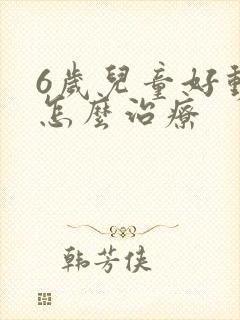 6歲兒童好動
怎麼治療
韩芳侠